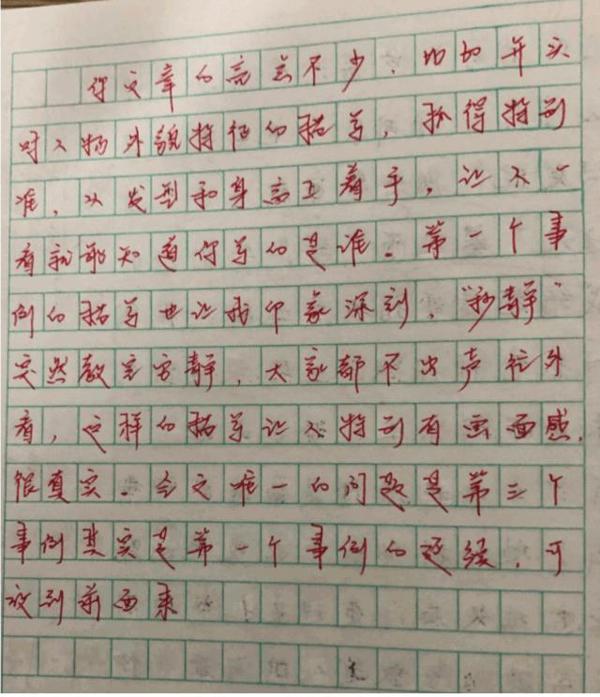 你文章的亮点不少，比如开头
对人物外貌特征的描写，抓得特别
准，从发型和身高上着手，让人一
看就能知道你写的是谁。第一个事
例的描写也让我印象深刻，“秒静”
突然教室安静，大家都不出声往外
看，这样的描写让人特别有画面感，
很真实。全文唯一的问题是第三个
事例其实是第一个事例的延续，可
放到前面来